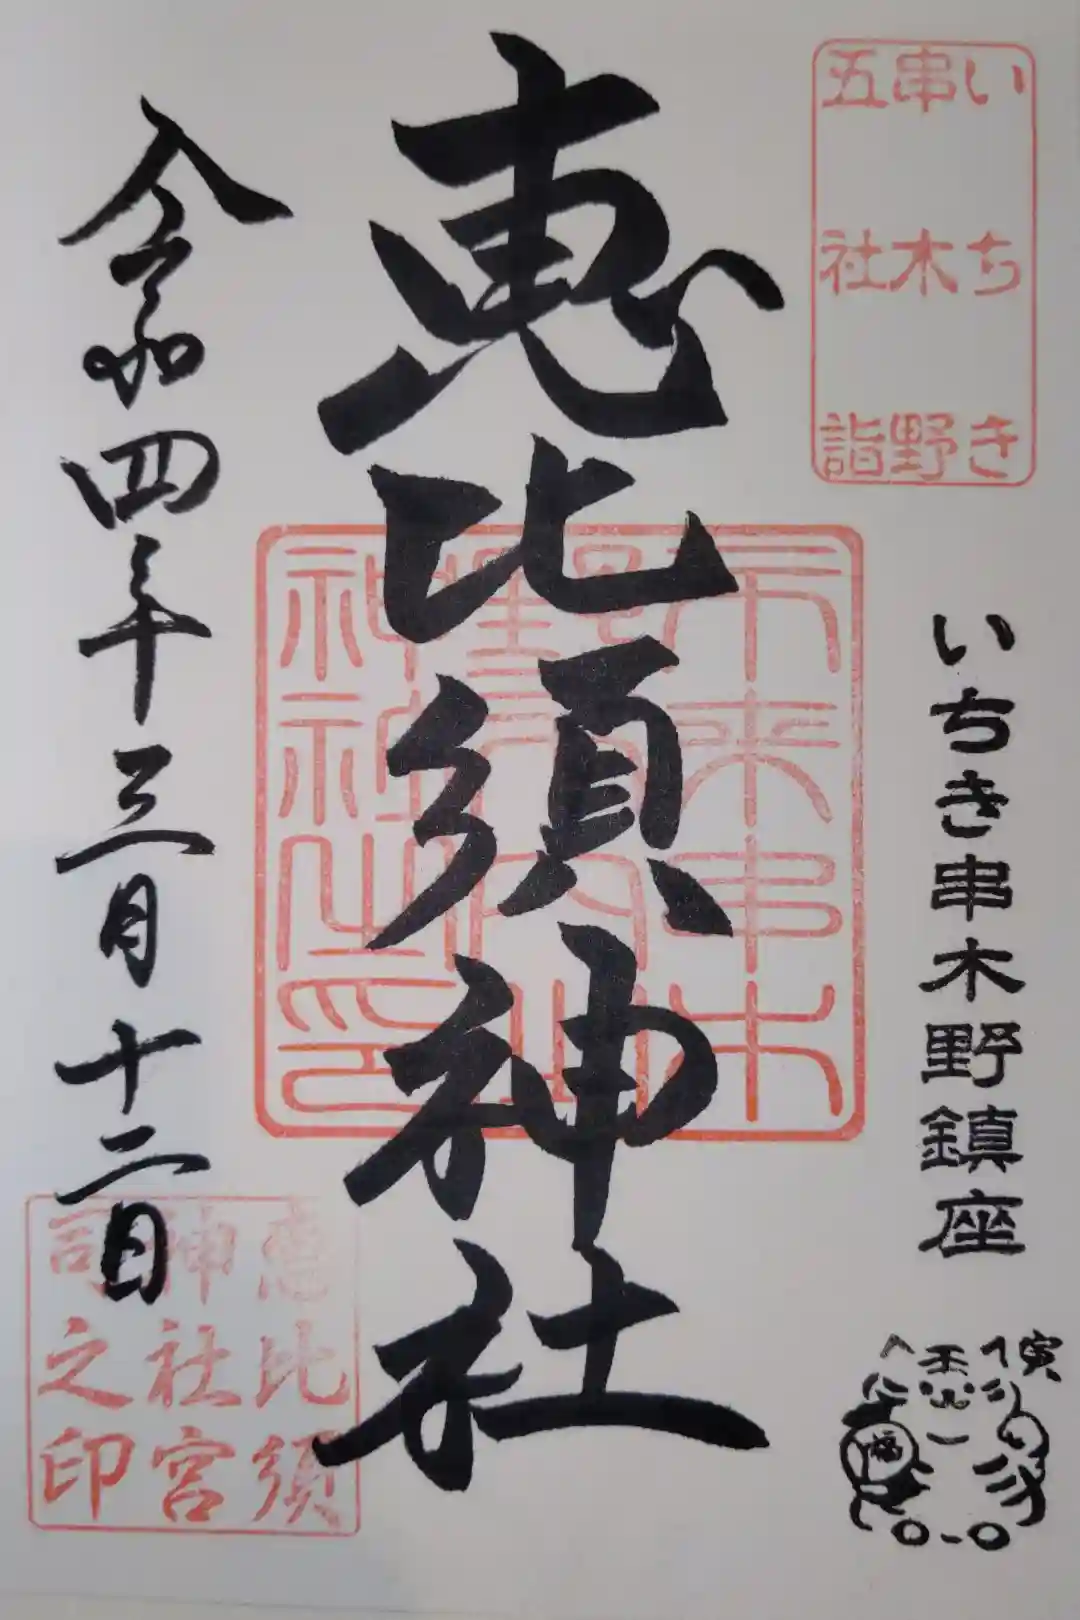 いちき
串木野
五社詣
いちき串木野鎮座
寅
恵比須神社
恵比須
神社宮
司之印
令和四年三月十二日